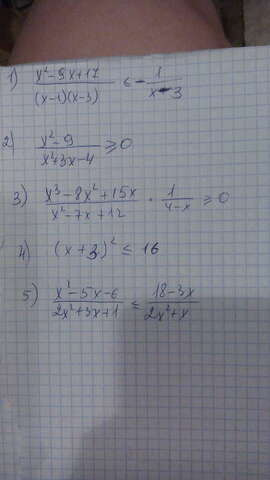 1) (x²-9x+17)/((x-1)(x-3)) ≤ -1/(x-3)
2) (x²-9)/(x²+3x-4) ≥ 0
3) (x³-8x²+15x)/(x²-7x+12) · 1/(4-x) ≥ 0
4) (x+3)² ≤ 16
5) (x²-5x-6)/(2x²+3x+1) ≤ (18-3x)/(2x²+x)